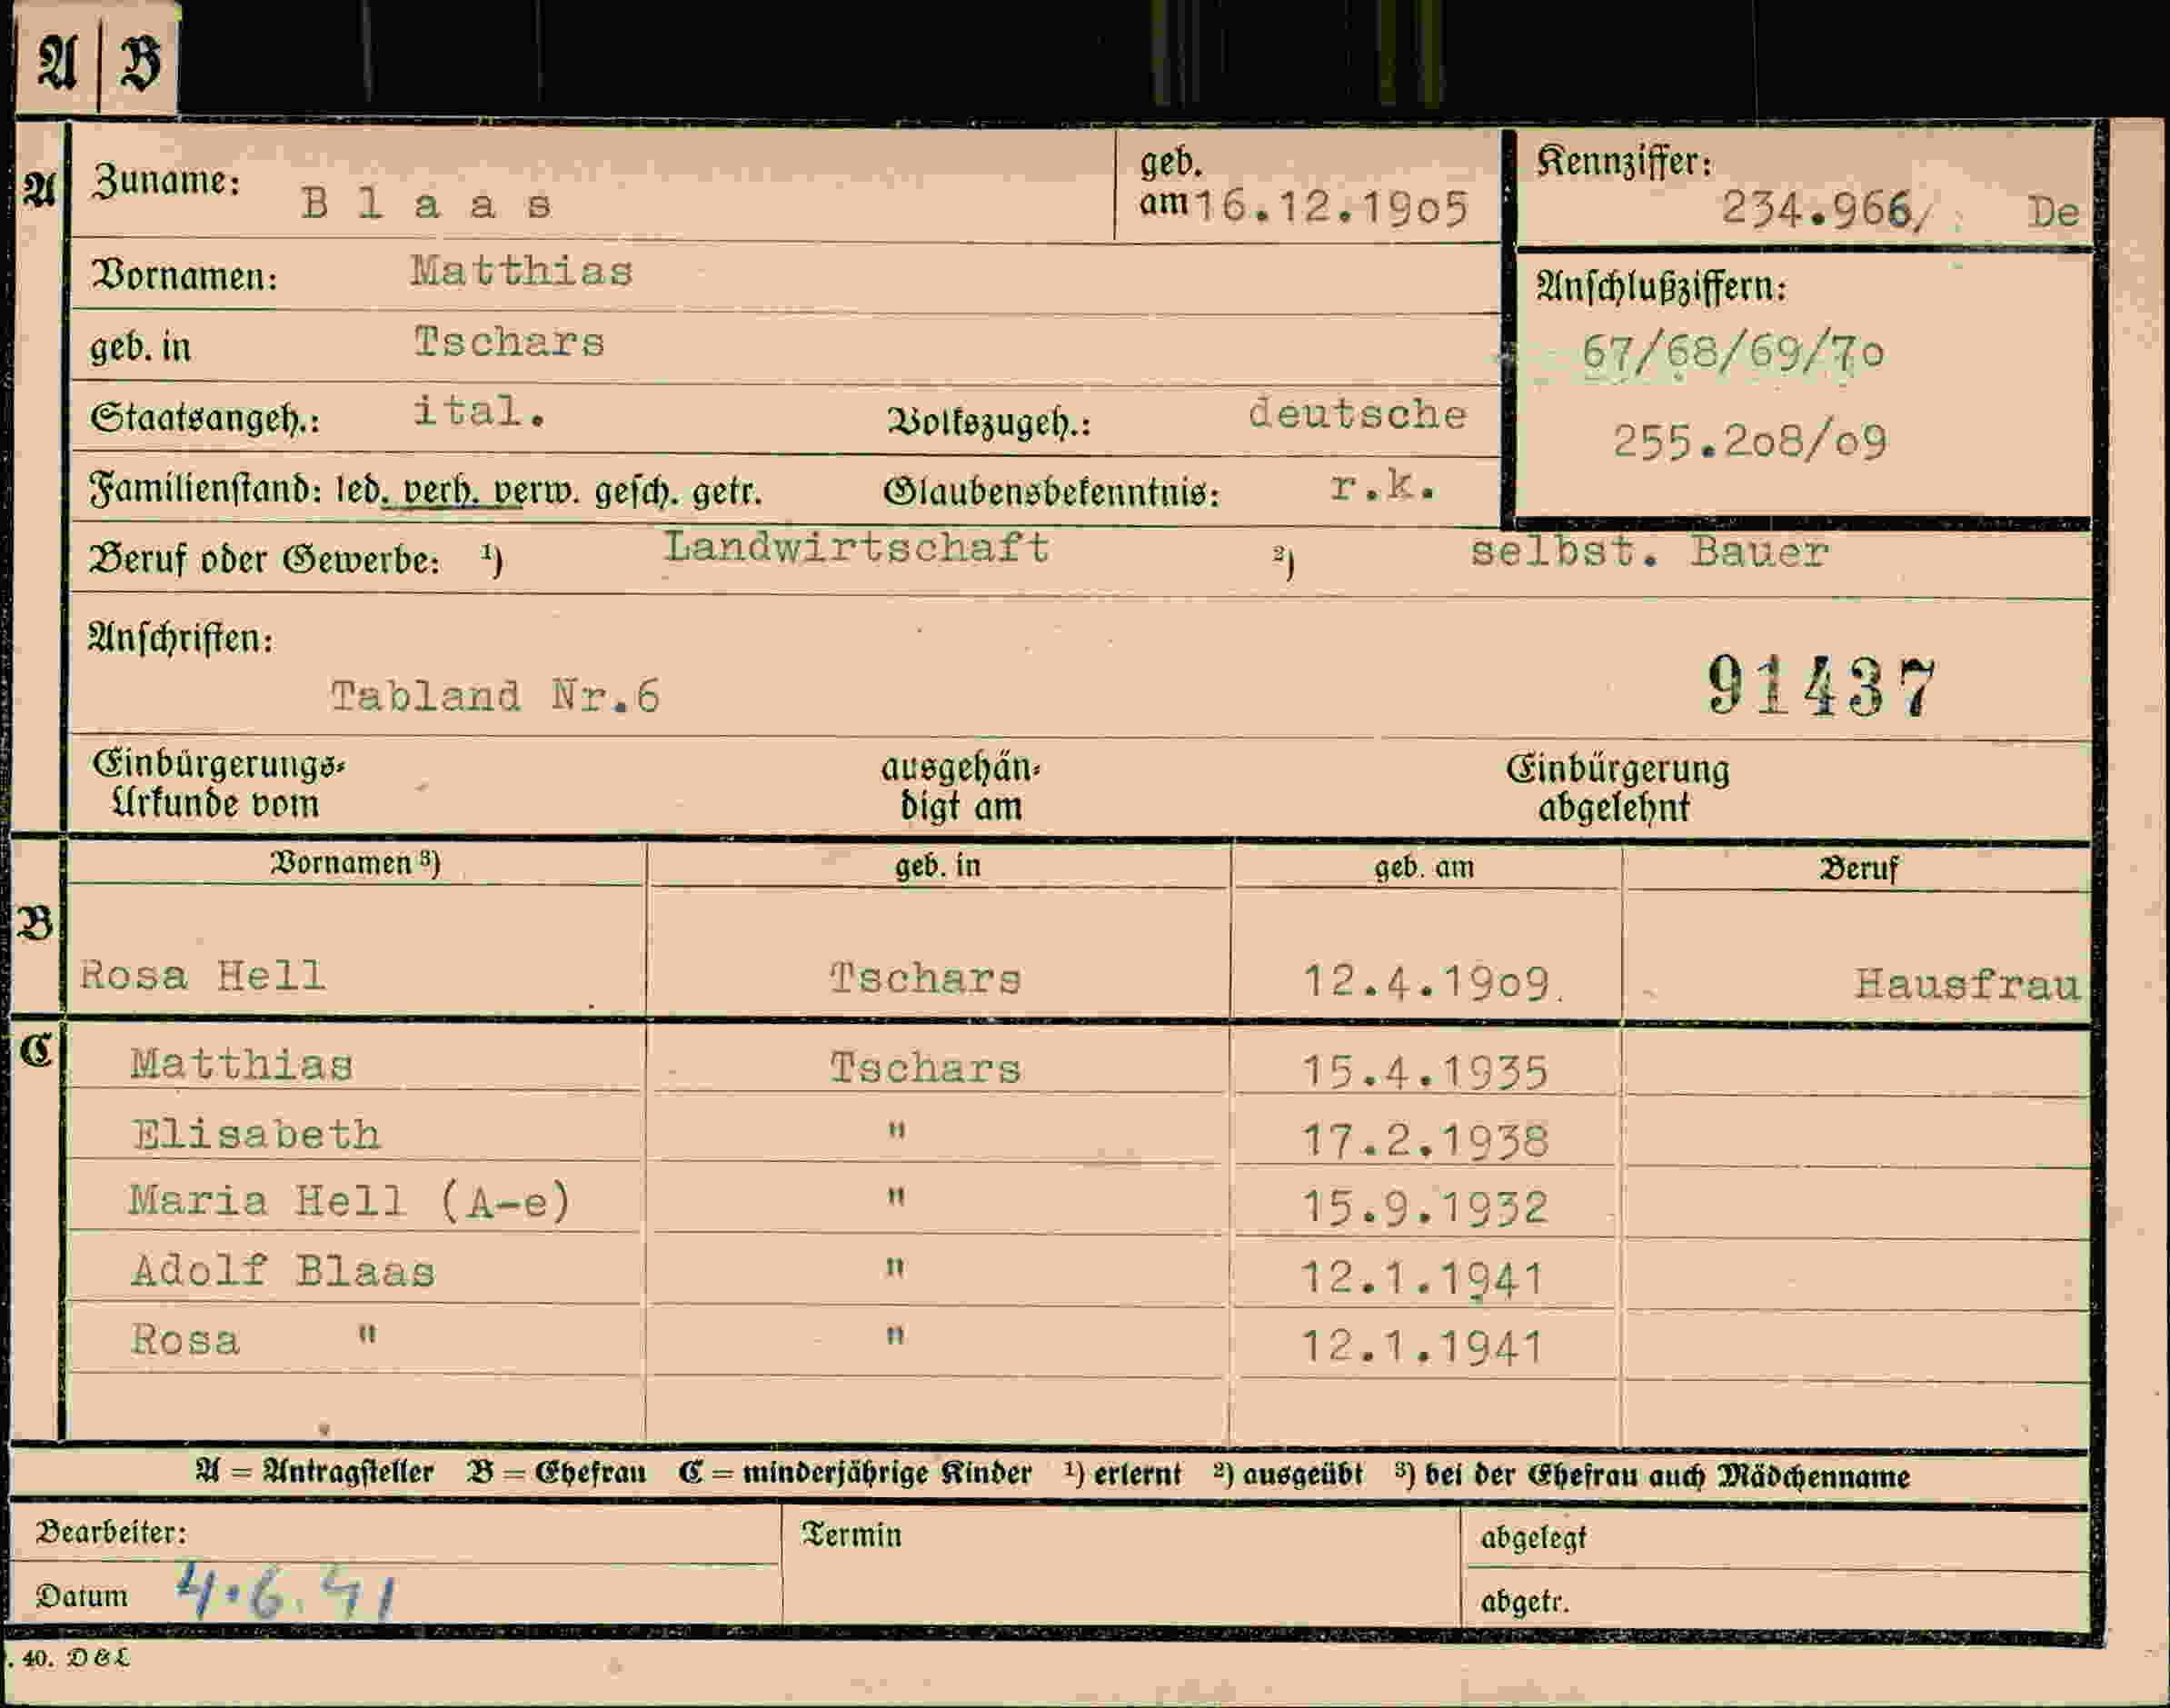 A | B
A Zuname: Blaas geb. am 16.12.1905 Kennziffer: 234.966/ De
Vornamen: Matthias Anschlußziffern:
geb. in Tschars 67/68/69/70
Staatsangeh.: ital. Volkszugeh.: deutsche 255.208/09
Familienstand: led. verh. verw. gesch. getr. Glaubensbekenntnis: r.k.
Beruf oder Gewerbe: ¹) Landwirtschaft ²) selbst. Bauer
Anschriften:
Tabland Nr.6 91437
Einbürgerungs- ausgehän- Einbürgerung
Urkunde vom digt am abgelehnt
Vornamen ³) geb. in geb. am Beruf
B
Rosa Hell Tschars 12.4.1909. Hausfrau
C Matthias Tschars 15.4.1935
Elisabeth " 17.2.1938
Maria Hell (A-e) " 15.9.1932
Adolf Blaas " 12.1.1941
Rosa " " 12.1.1941
A = Antragsteller B = Ehefrau C = minderjährige Kinder ¹) erlernt ²) ausgeübt ³) bei der Ehefrau auch Mädchenname
Bearbeiter: Termin abgelegt
Datum 4.6.41 abgetr.
. 40. D & L